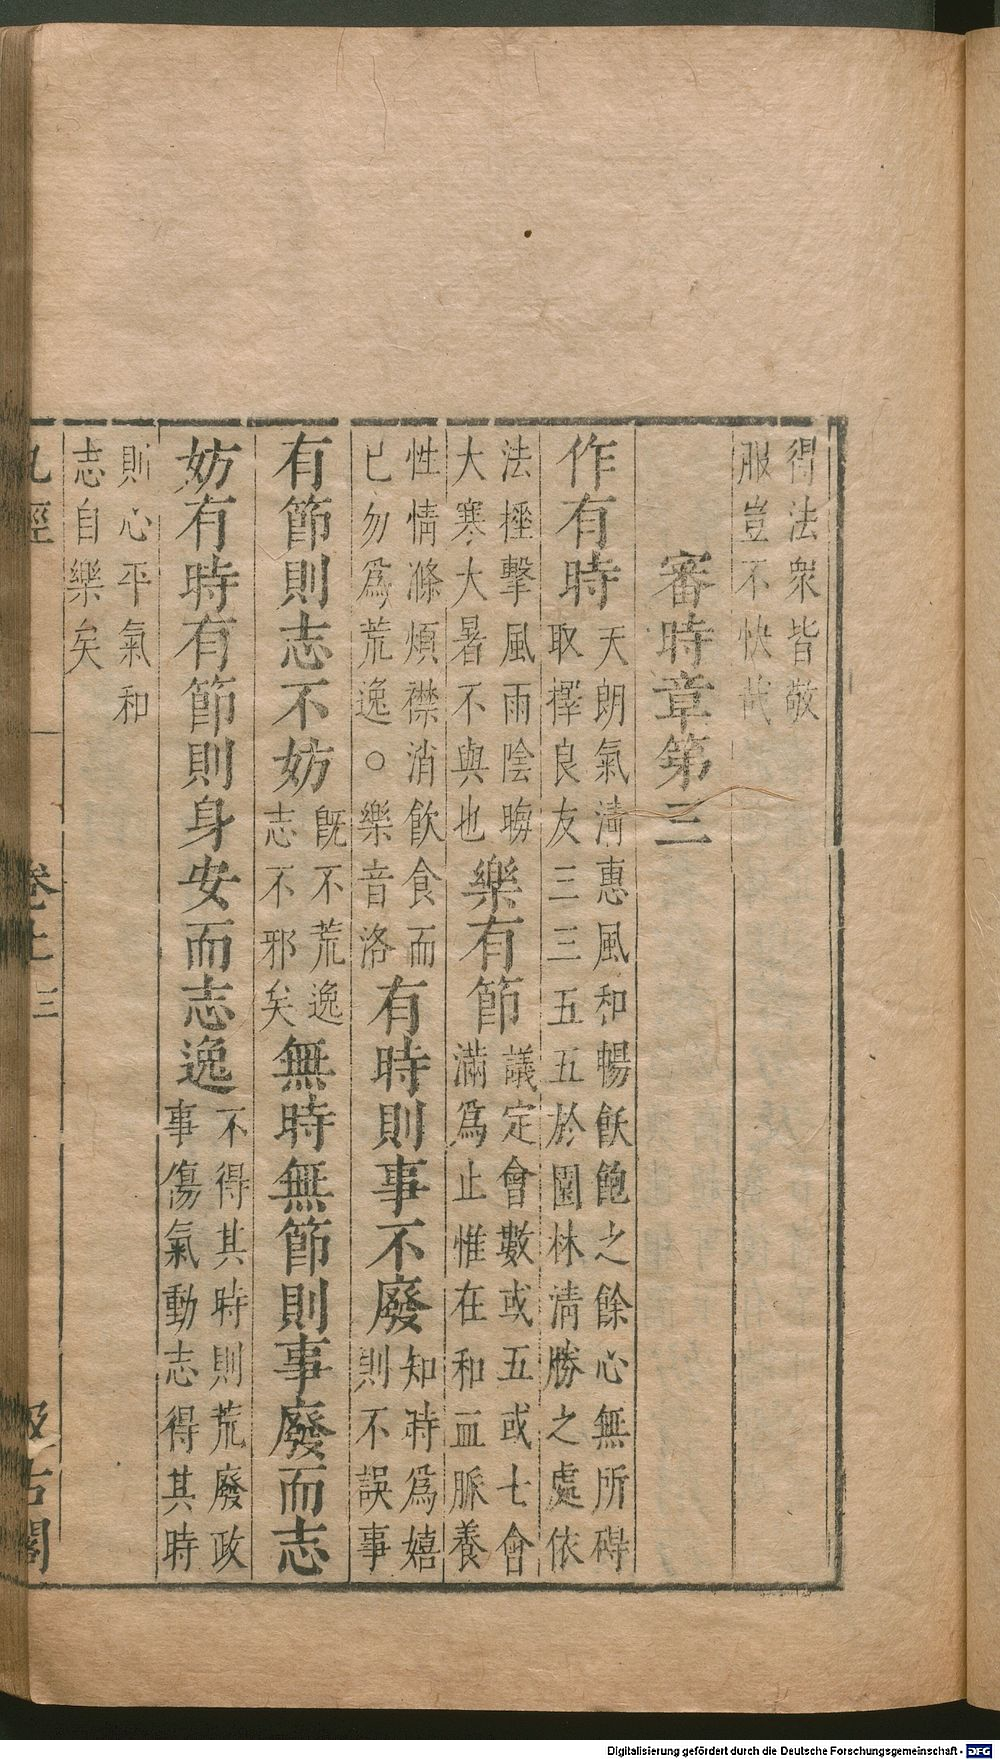 得法衆皆敬
服豈不快哉
審時章第三
作有時
天朗氣清惠風和暢飫飽之餘心無所碍
取擇良友三三五五於園林清勝之處依
法捶擊風雨陰晦
大寒大暑不與也
樂有節
議定會數或五或七會
滿爲止惟在和血脈養
性情滌煩襟消飲食而
已勿爲荒逸○樂音洛
有時則事不廢
知時爲嬉
則不誤事
有節則志不妨
既不荒逸
志不邪矣
無時無節則事廢而志
妨有時有節則身安而志逸
不得其時則荒廢政
事傷氣動志得其時
則心平氣和
志自樂矣
丸經 卷上 三 汲古閣
Digitalisierung gefördert durch die Deutsche Forschungsgemeinschaft - DFG